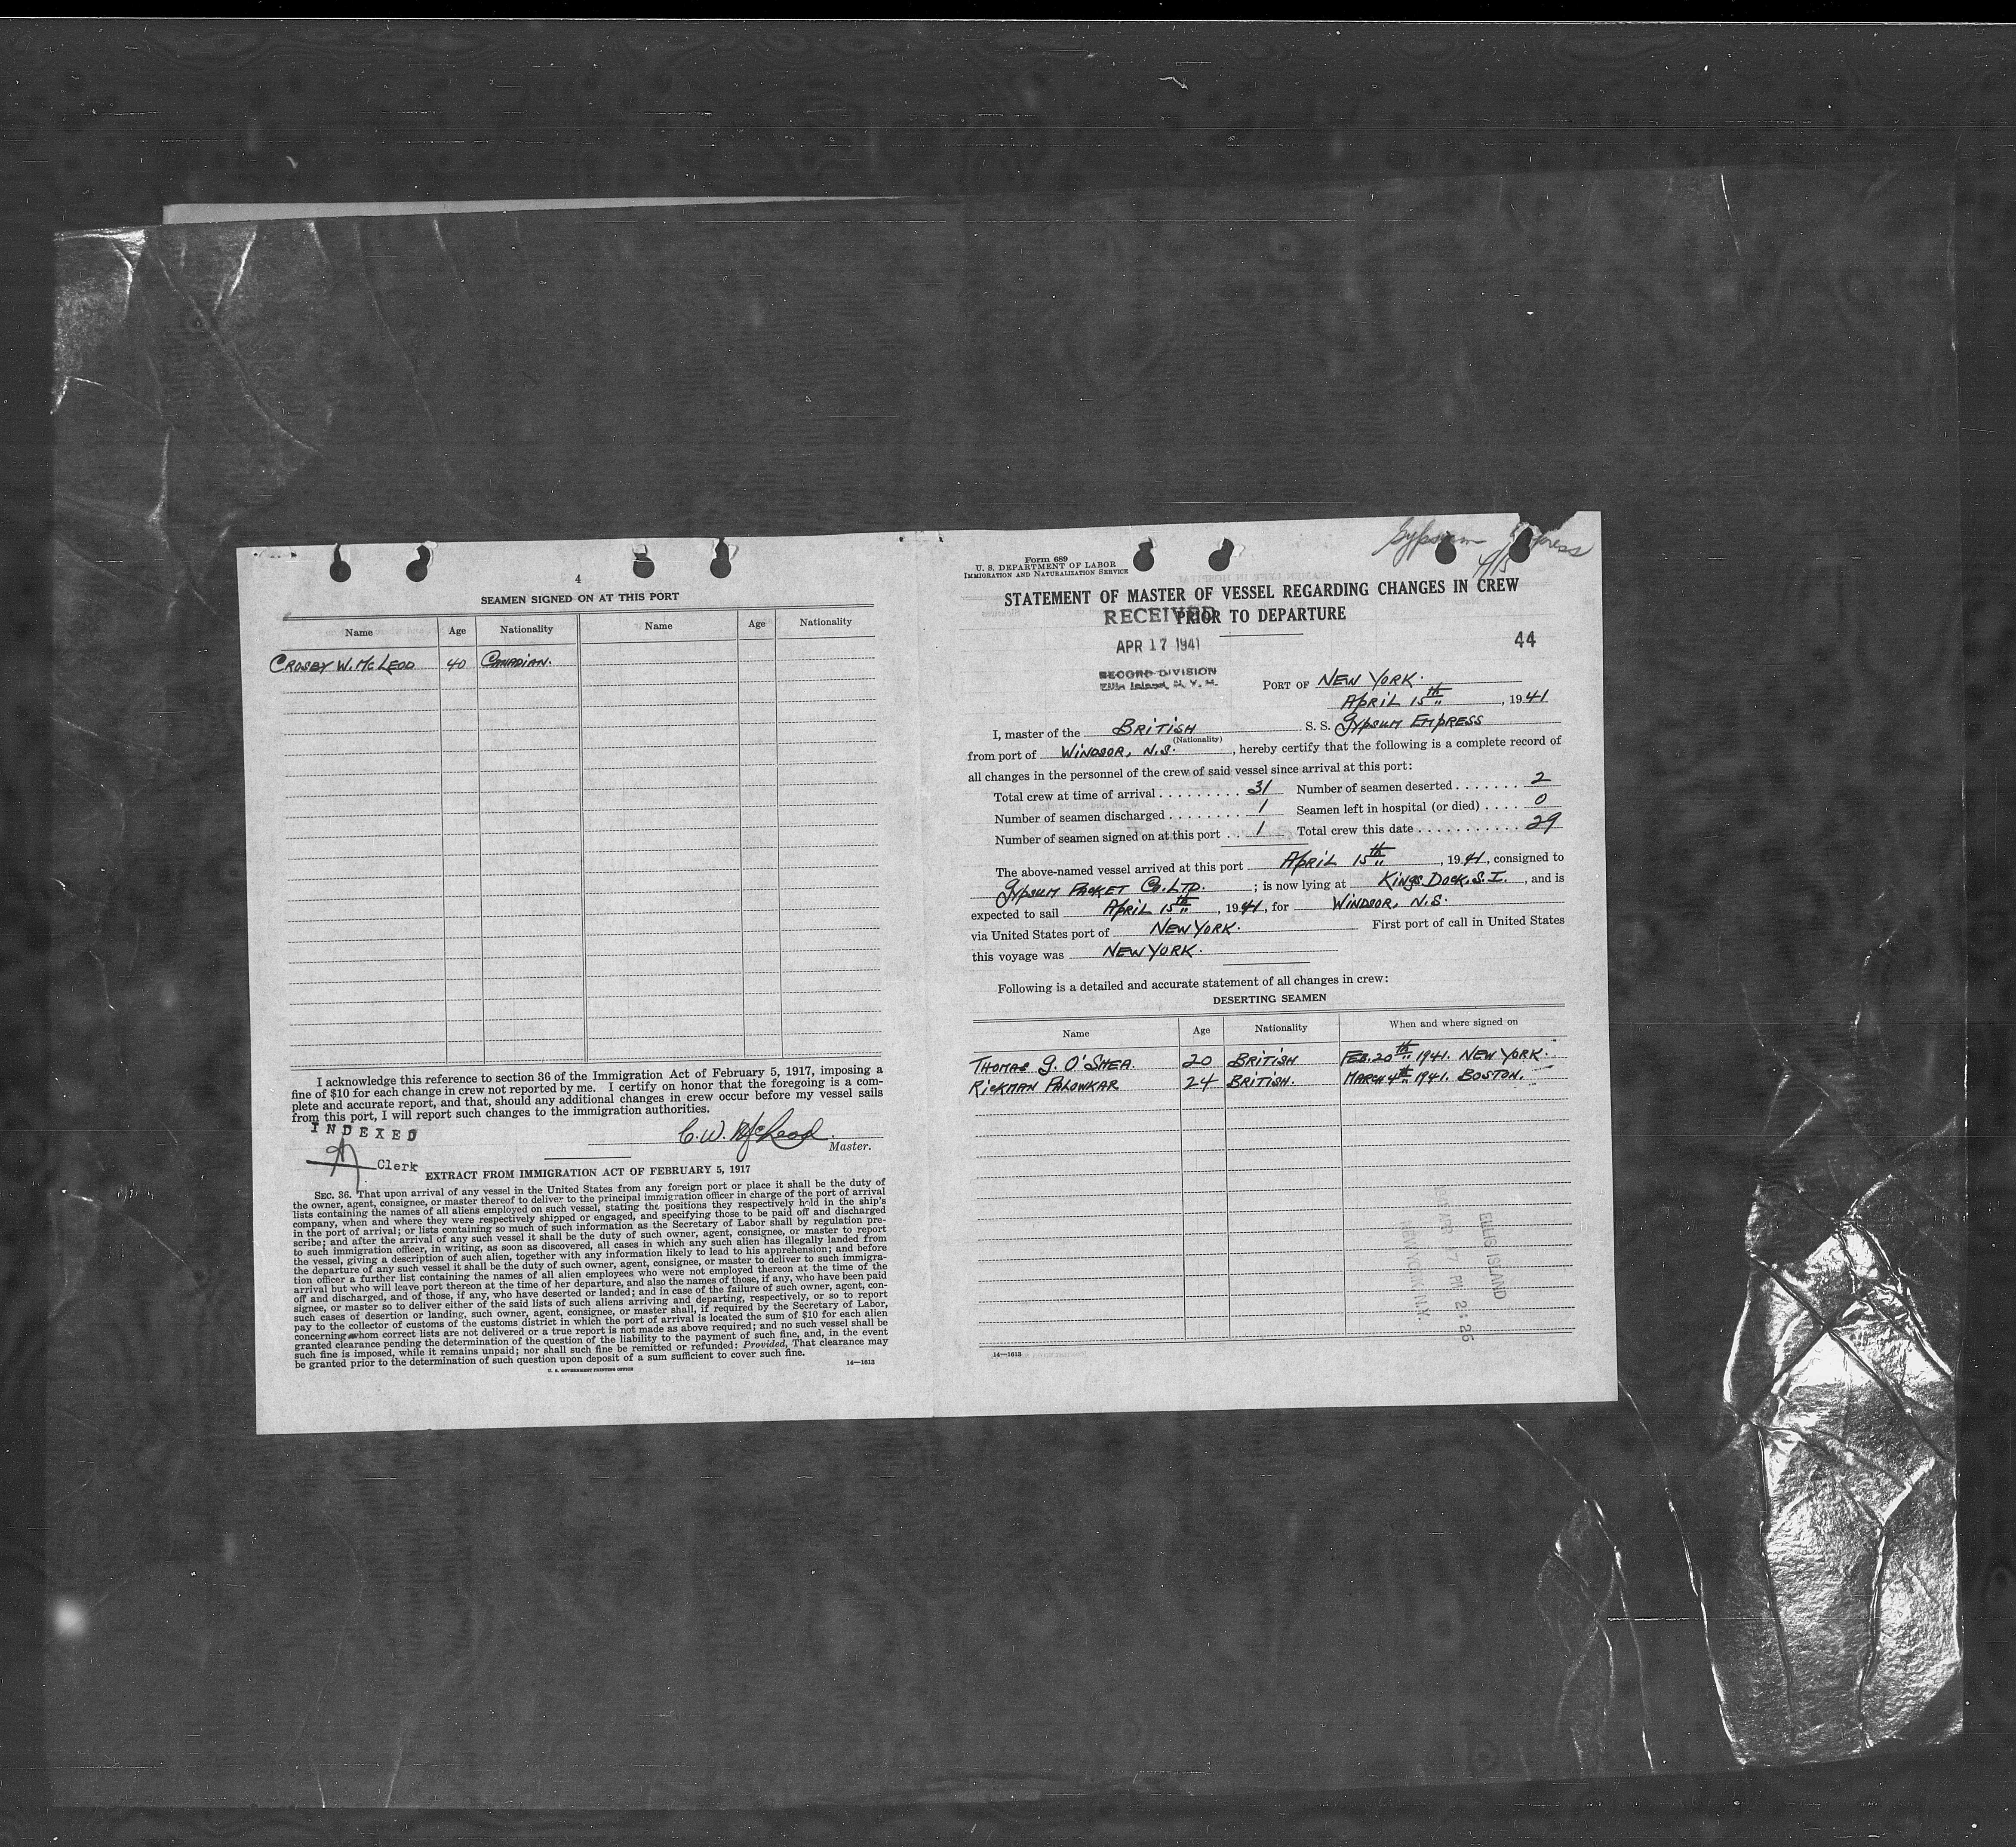 4
SEAMEN SIGNED ON AT THIS PORT
Name Age Nationality Name Age Nationality
CROSBY W. McLEOD 40 CANADIAN.
I acknowledge this reference to section 36 of the Immigration Act of February 5, 1917, imposing a
fine of $10 for each change in crew not reported by me. I certify on honor that the foregoing is a com-
plete and accurate report, and that, should any additional changes in crew occur before my vessel sails
from this port, I will report such changes to the immigration authorities.
INDEXED
C. W. McLeod.
Master.
Clerk
EXTRACT FROM IMMIGRATION ACT OF FEBRUARY 5, 1917
SEC. 36. That upon arrival of any vessel in the United States from any foreign port or place it shall be the duty of
the owner, agent, consignee, or master thereof to deliver to the principal immigration officer in charge of the port of arrival
lists containing the names of all aliens employed on such vessel, stating the positions they respectively hold in the ship's
company, when and where they were respectively shipped or engaged, and specifying those to be paid off and discharged
in the port of arrival; or lists containing so much of such information as the Secretary of Labor shall by regulation pre-
scribe; and after the arrival of any such vessel it shall be the duty of such owner, agent, consignee, or master to report
to such immigration officer, in writing, as soon as discovered, all cases in which any such alien has illegally landed from
the vessel, giving a description of such alien, together with any information likely to lead to his apprehension; and before
the departure of any such vessel it shall be the duty of such owner, agent, consignee, or master to deliver to such immigra-
tion officer a further list containing the names of all alien employees who were not employed thereon at the time of the
arrival but who will leave port thereon at the time of her departure, and also the names of those, if any, who have been paid
off and discharged, and of those, if any, who have deserted or landed; and in case of the failure of such owner, agent, con-
signee, or master so to deliver either of the said lists of such aliens arriving and departing, respectively, or so to report
such cases of desertion or landing, such owner, agent, consignee, or master shall, if required by the Secretary of Labor,
pay to the collector of customs of the customs district in which the port of arrival is located the sum of $10 for each alien
concerning whom correct lists are not delivered or a true report is not made as above required; and no such vessel shall be
granted clearance pending the determination of the question of the liability to the payment of such fine, and, in the event
such fine is imposed, while it remains unpaid; nor shall such fine be remitted or refunded: Provided, That clearance may
be granted prior to the determination of such question upon deposit of a sum sufficient to cover such fine.
U. S. GOVERNMENT PRINTING OFFICE 14—1613
Gypsum Empress
4/15
Form 689
U. S. DEPARTMENT OF LABOR
IMMIGRATION AND NATURALIZATION SERVICE
STATEMENT OF MASTER OF VESSEL REGARDING CHANGES IN CREW
PRIOR TO DEPARTURE
RECEIVED
APR 17 1941
RECORD DIVISION
Ellis Island, N. Y. H.
44
PORT OF NEW YORK.
APRIL 15th, 1941
I, master of the BRITISH S. S. GYPSUM EMPRESS
(Nationality)
from port of WINDSOR, N.S., hereby certify that the following is a complete record of
all changes in the personnel of the crew of said vessel since arrival at this port:
Total crew at time of arrival . . . . . . . . . 31 Number of seamen deserted . . . . . . . 2
Number of seamen discharged . . . . . . . . 1 Seamen left in hospital (or died) . . . . 0
Number of seamen signed on at this port . . 1 Total crew this date . . . . . . . . . . . . 29
The above-named vessel arrived at this port APRIL 15th, 1941, consigned to
GYPSUM PACKET CO. LTD. ; is now lying at KINGS DOCK, S.I., and is
expected to sail APRIL 15th, 1941, for WINDSOR, N.S.
via United States port of NEW YORK. First port of call in United States
this voyage was NEW YORK.
Following is a detailed and accurate statement of all changes in crew:
DESERTING SEAMEN
Name Age Nationality When and where signed on
THOMAS G. O'SHEA. 20 BRITISH FEB. 20th 1941. NEW YORK.
RICKMAN PALOWKAR 24 BRITISH. MARCH 4th 1941. BOSTON.
ELLIS ISLAND
1941 APR 17 PM 2:26
NEW YORK, N.Y.
14—1613